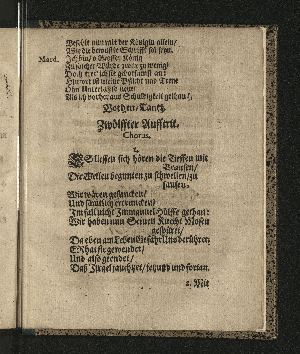 Befehlt nun mit der Königin allein/
Wie die bewuste Schrifft sol seyn.
Mard. Ich bin/ o Grosser König
Zu solcher Würde zwar zu wenig/
Doch
ist meine Pflicht und Treue
Ohn Unterlaß
Als ich vorher aus Schuldigkeit gethan/
Bothen/ Tantz.
Zwölffter Aufftritt.
Chorus.
1.
ES liessen sich hören die Tieffen mit
Brausen/
Die Wellen begunten zu schwellen/ zu
sausen.
Wir wären gesuncken/
Und sämtlich ertruncken/
Im fall nicht Immanuel Hülffe gethan:
Wir haben nun Seinen Knecht Mosen
gespüret/
Da eben am Leben Gefahr Uns berühret;
ER hat sie gewendet/
Und also geendet/
Daß Israel jauchzet/ und fortan.
2. Mit